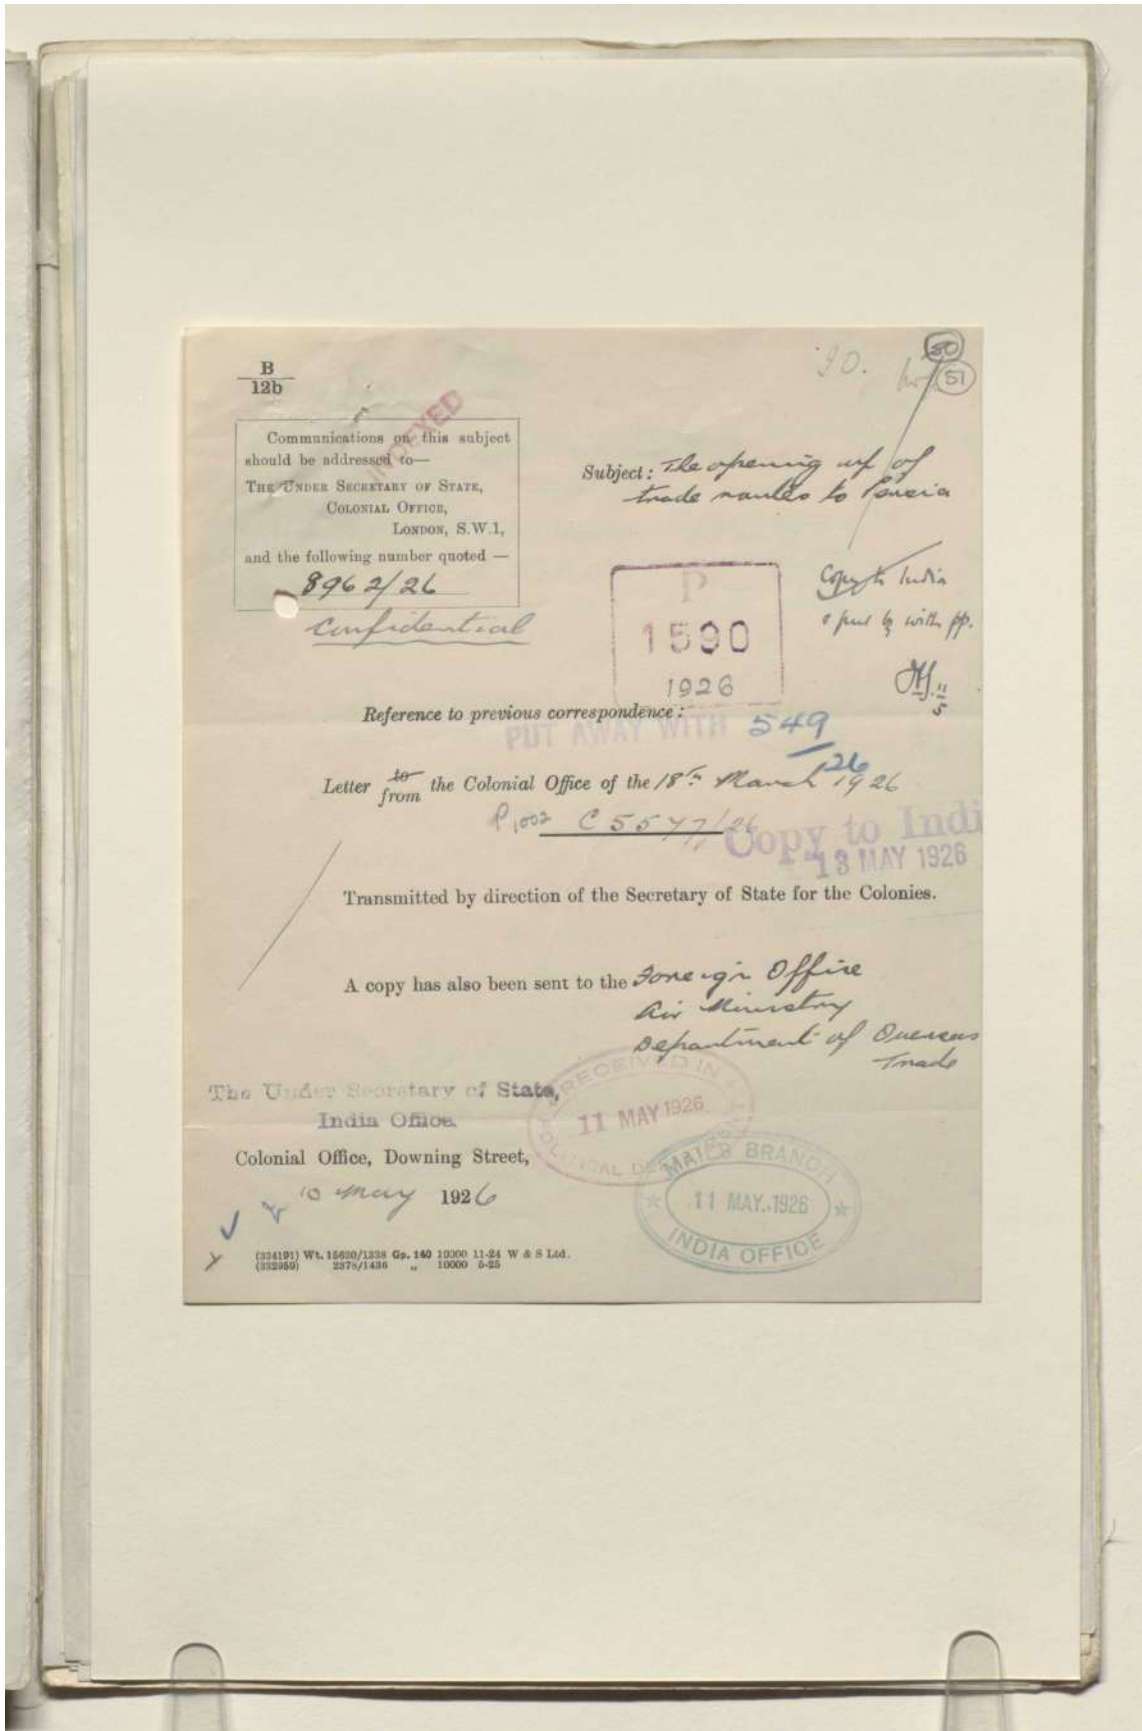 B
12b
30.
50
51
INDEXED
Communications on this subject
should be addressed to—
THE UNDER SECRETARY OF STATE,
COLONIAL OFFICE,
LONDON, S.W.1,
and the following number quoted —
8962/26
Confidential
Subject: The opening up of
trade routes to Persia
Copy to India
& put by with pp.
11
5
P
1590
1926
Reference to previous correspondence:
PUT AWAY WITH 549
26
Letter to from the Colonial Office of the 18th March 1926
P1002 C5547/26
Copy to Indi
13 MAY 1926
Transmitted by direction of the Secretary of State for the Colonies.
A copy has also been sent to the Foreign Office
Air Ministry
Department of Overseas
Trade
The Under Secretary of State,
India Office.
Colonial Office, Downing Street,
10 May 1926
RECEIVED IN
11 MAY 1926
POLITICAL
MAIL BRANCH
11 MAY.1926
INDIA OFFICE
(334191) Wt. 15630/1338 Gp. 140 10000 11-24 W & S Ltd.
(332959) 2378/1436 „ 10000 5-25